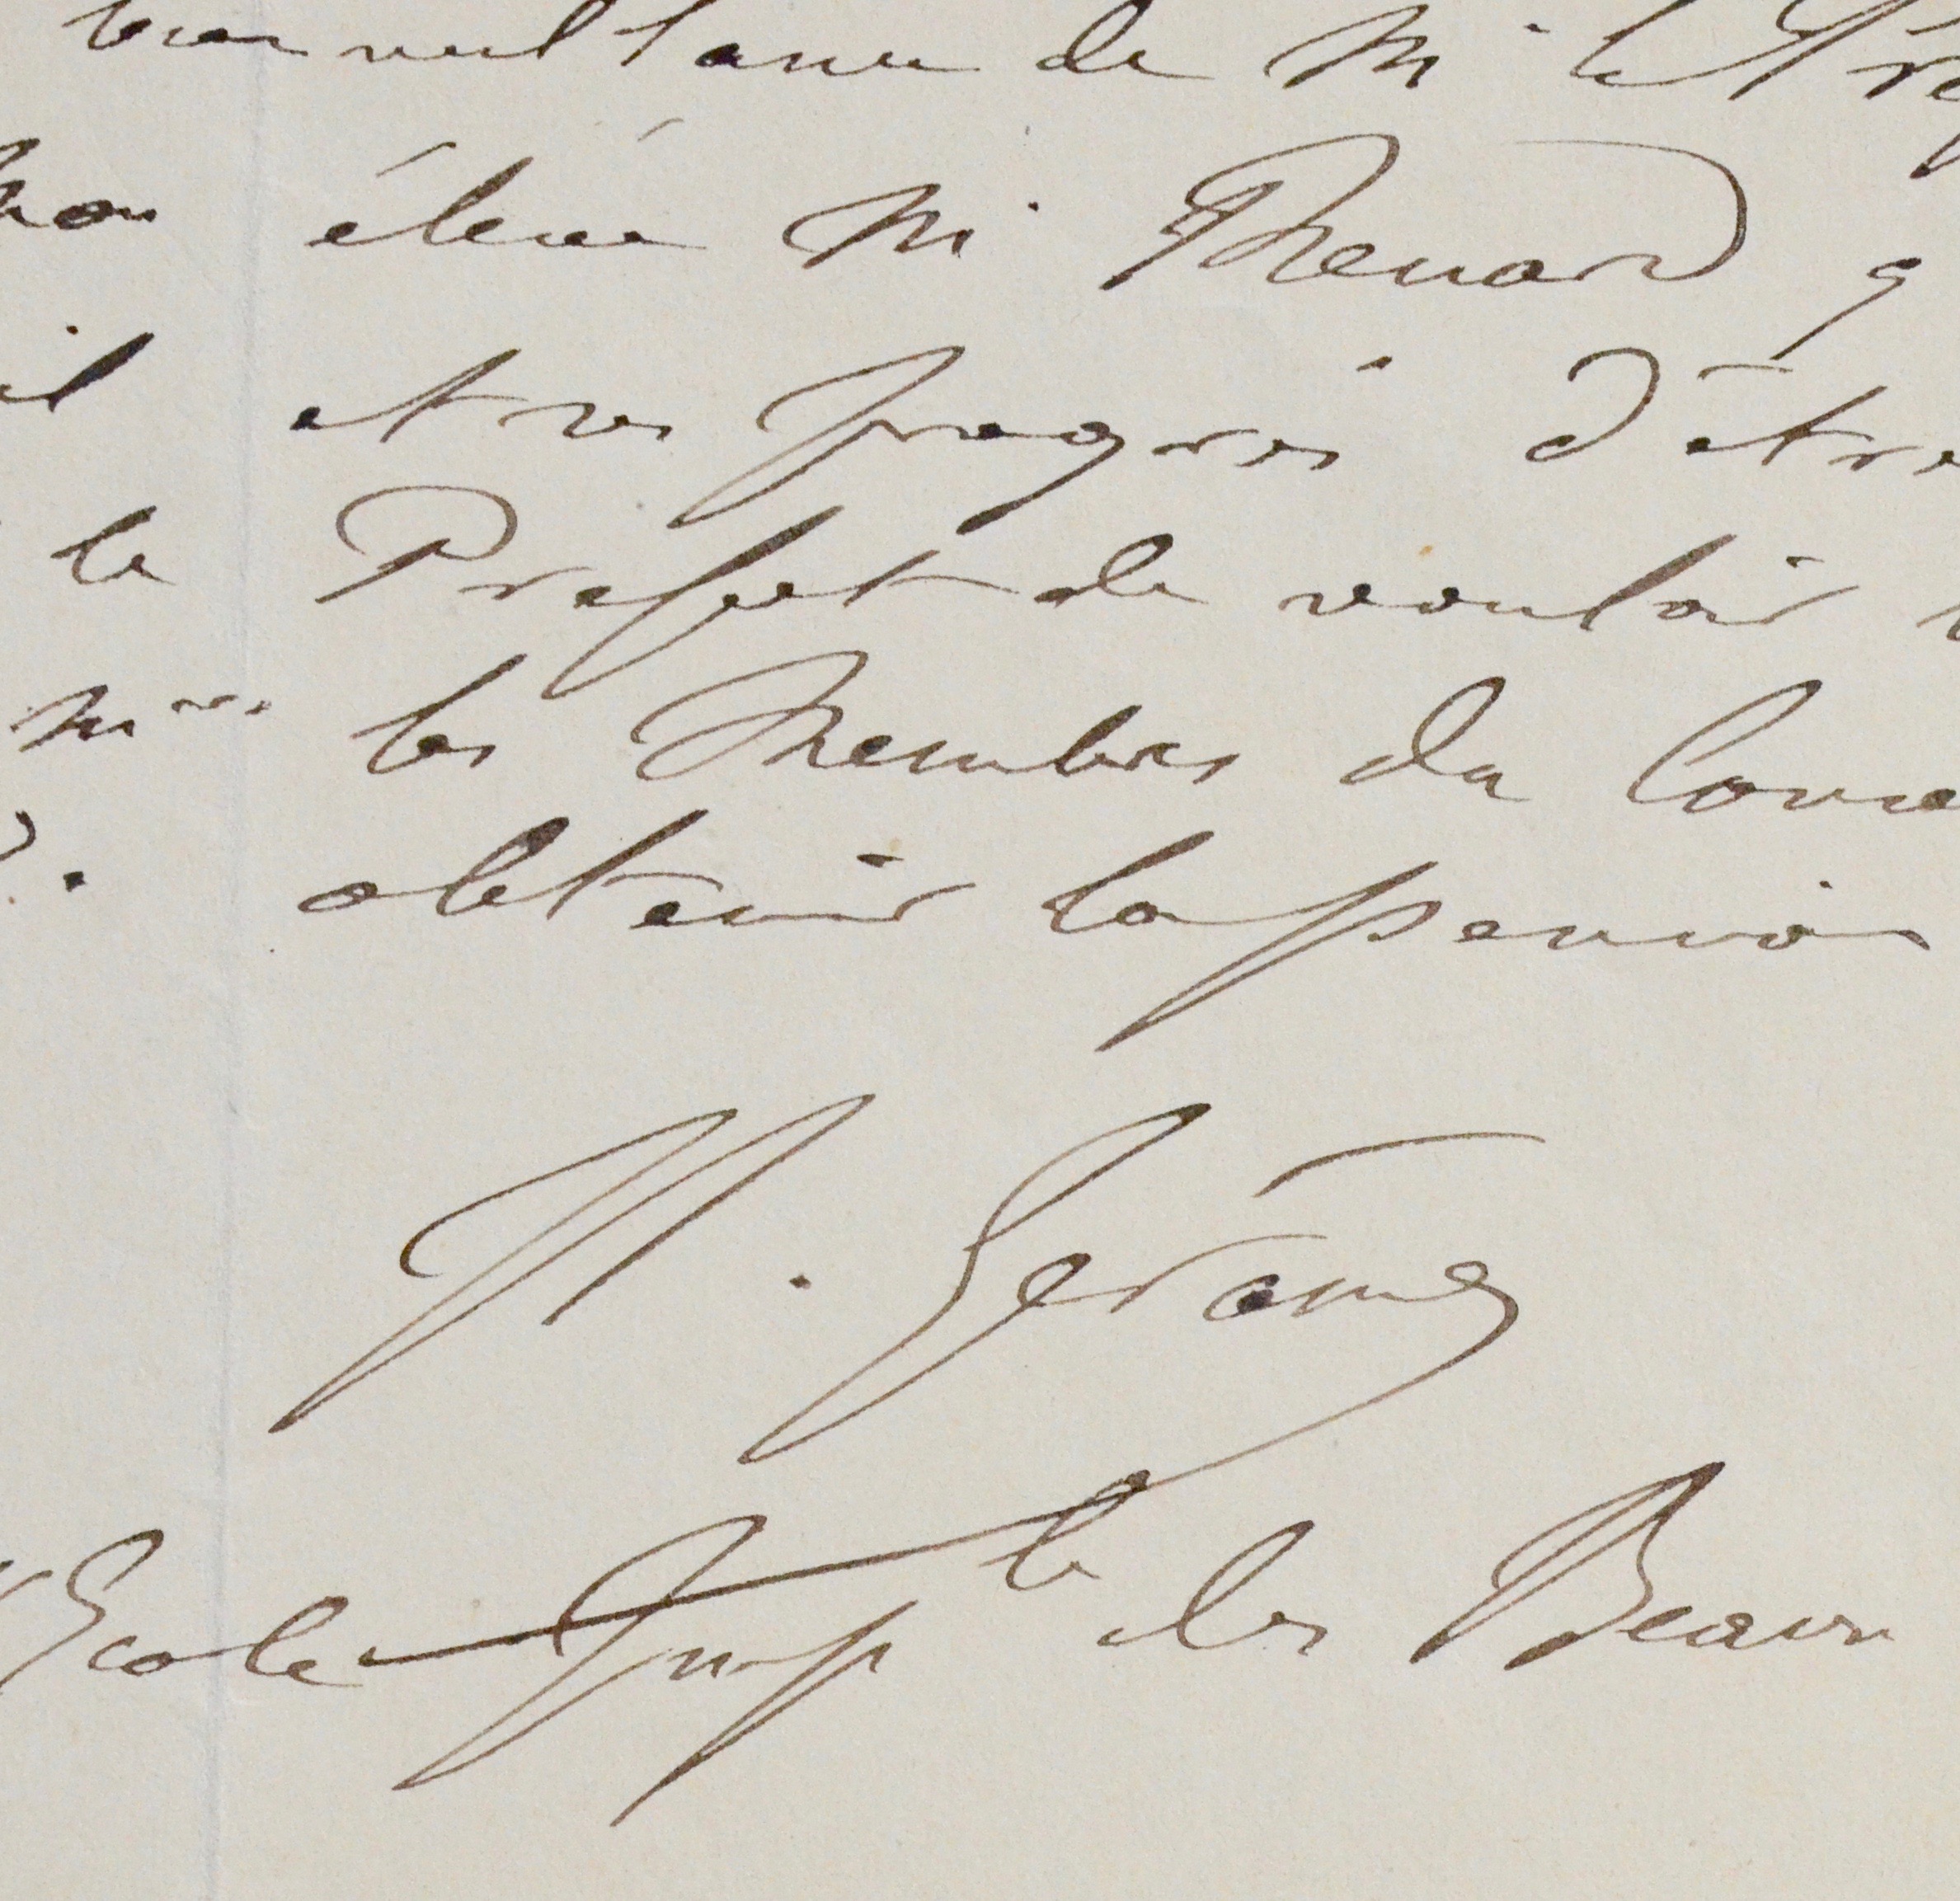 bienveillance de M. le Pré
mon élève M. Renard q
il et ses progrès d'être
le Préfet de vouloir
Mrs les Membres du Conse
obtenir la pension
J. Gérôme
Ecole Imple des Beaux